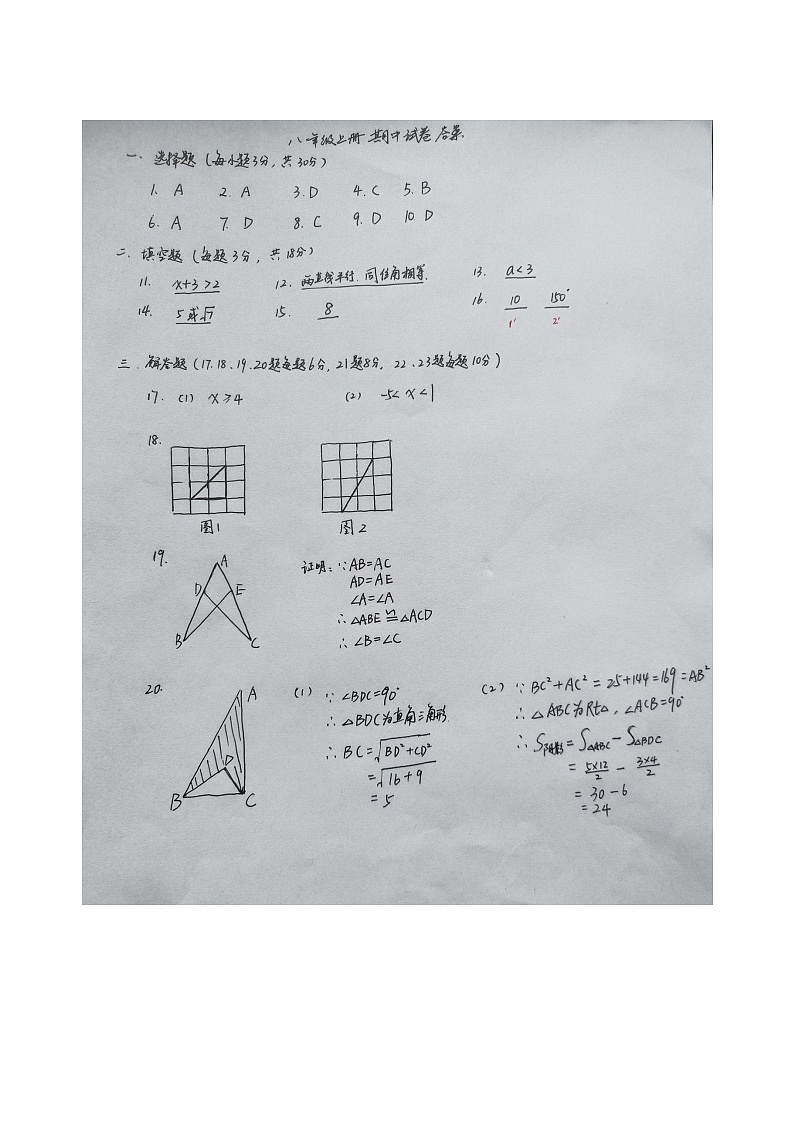 八年级上册 期中试卷 答案
一、选择题（每小题3分，共30分）
1. A 2. A 3. D 4. C 5. B
6. A 7. D 8. C 9. D 10. D
二、填空题（每题3分，共18分）
11. x+3>2 12. 两直线平行.同位角相等. 13. a<3
14. 5或√7 15. 8 16. 10 150°
1' 2'
三.解答题（17.18、19、20题每题6分，21题8分，22、23题每题10分）
17. (1) x≥4 (2) -5<x<1
18.
图1 图2
19. A D E B C
证明：∵AB=AC
AD=AE
∠A=∠A
∴△ABE≌△ACD
∴∠B=∠C
20. A D B C
(1) ∵∠BDC=90°
∴△BDC为直角三角形.
∴BC=√(BD²+CD²)
=√(16+9)
=5
(2) ∵BC²+AC²=25+144=169=AB²
∴△ABC为Rt△，∠ACB=90°
∴S阴影=S△ABC-S△BDC
=5×12/2-3×4/2
=30-6
=24